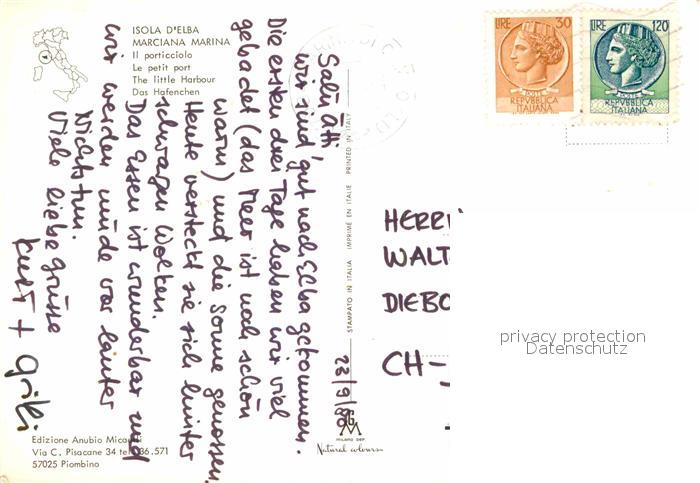 ISOLA D'ELBA
MARCIANA MARINA
Il porticciolo
Le petit port
The little Harbour
Das Hafenchen
LIRE 30
POSTE
REPVBBLICA
ITALIANA
LIRE 120
POSTE
REPVBBLICA
ITALIANA
23/9/80
Salü Ätti,
wir sind gut nach Elba gekommen.
Die ersten drei Tage haben wir viel
gebadet (das Meer ist noch schön
warm) und die Sonne genossen.
Heute versteckt sie sich hinter
schwarzen Wolken.
Das Essen ist wunderbar und
wir werden müde vor lauter
Nichtstun.
Viele liebe Grüsse
Kurt +
HERR
WALT
DIEBO
CH-
privacy protection
Datenschutz
STAMPATO IN ITALIA IMPRIME EN ITALIE PRINTED IN ITALY
MILANO DEP.
Natural colours
Edizione Anubio
Via C. Pisacane 34 36.571
57025 Piombino